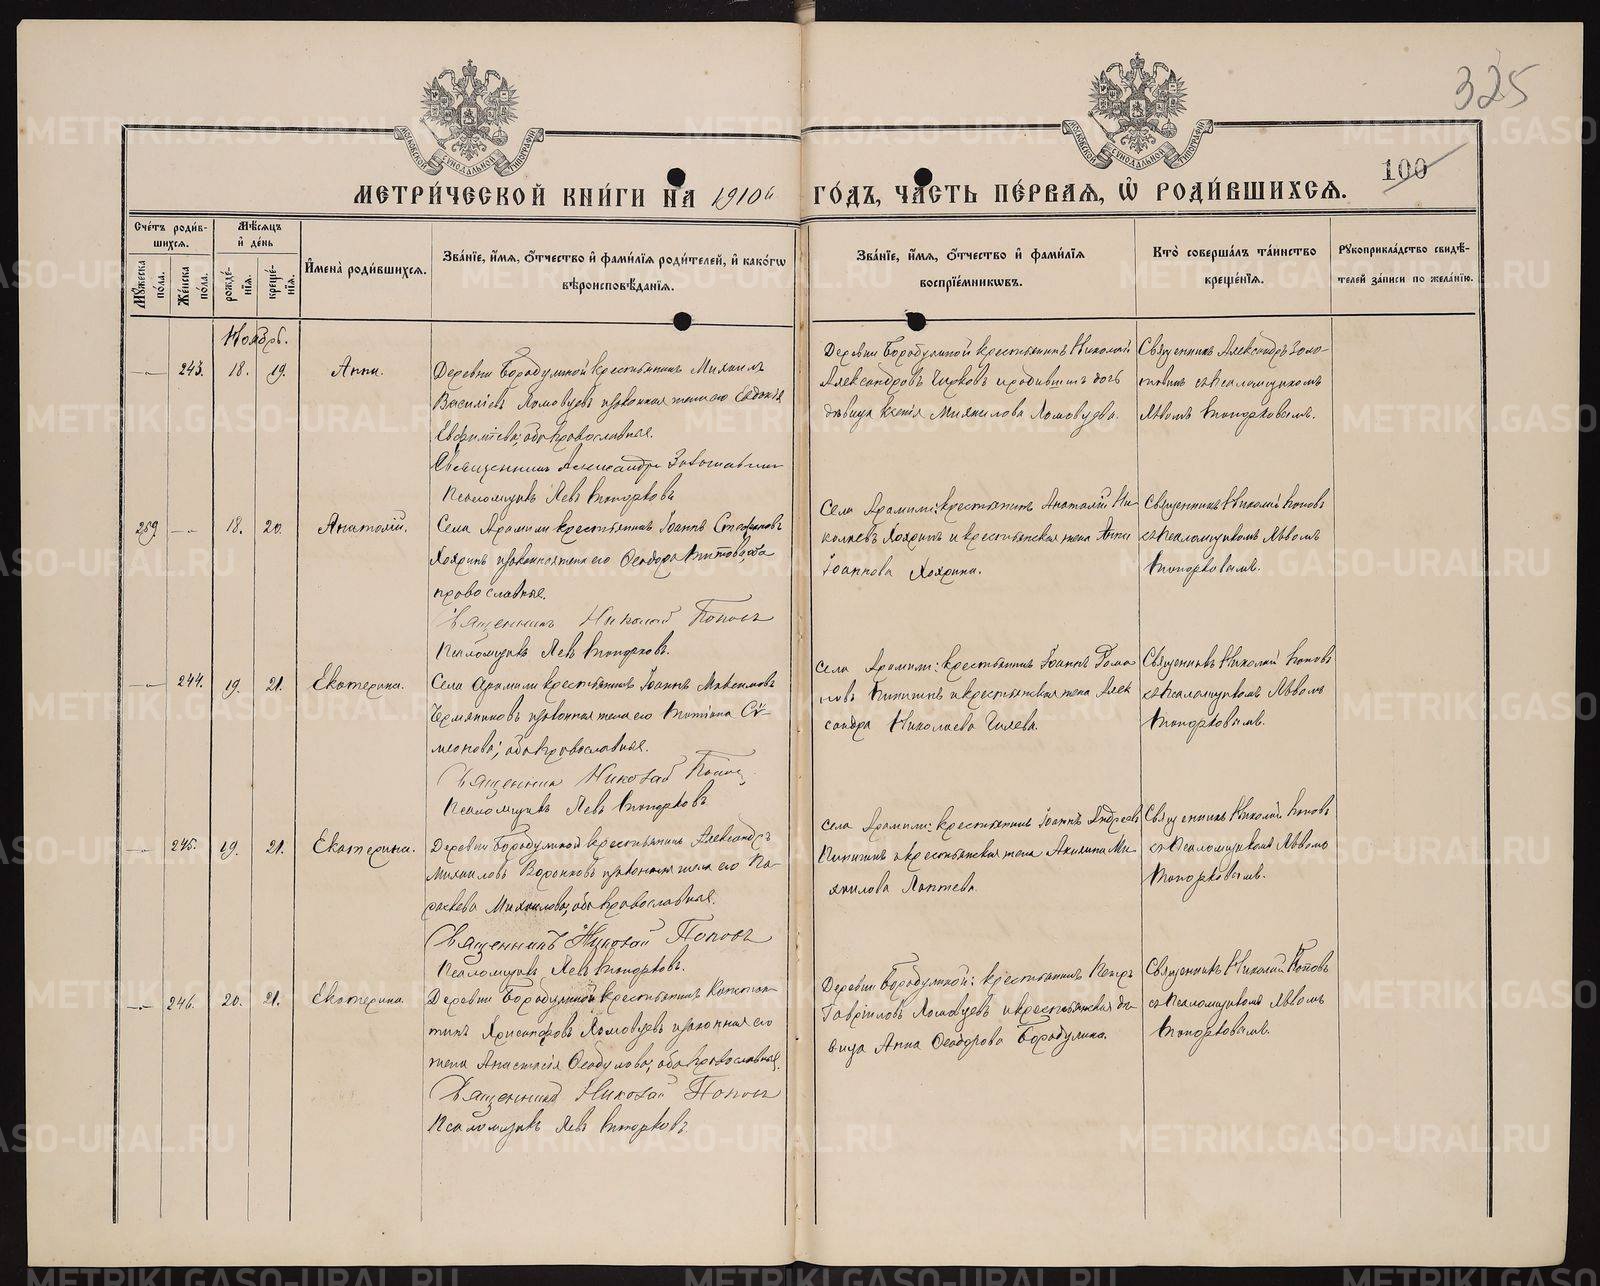 325
100
МЕТРИ́ЧЕСКОЙ КНИ́ГИ НА 1910й ГО́ДЪ, ЧА́СТЬ ПЕ́РВАЯ, Ѡ РОДИ́ВШИХСЯ.
Сче́тъ роди́в-
шихся.
Му́жеска по́ла.
Же́нска по́ла.
Мѣ́сяцъ
и де́нь
рожде́-
нія.
креще́-
нія.
И҆мена̀ роди́вшихся.
Зва́ніе, и҆́мя, ѻ҆́тчество и҆ фами́лія роди́телей, и҆ како́гѡ
вѣроисповѣ́данія.
Зва́ніе, и҆́мя, ѻ҆́тчество и҆ фами́лія
воспріе́мникѡвъ.
Кто̀ соверша́лъ та́инство
креще́нія.
Рꙋкоприкла́дство свидѣ́-
телей за́писи по жела́нію.
Ноябрь.
243. 18. 19. Анна.
Деревни Бородулиной крестьянинъ Михаилъ
Василіевъ Ломовцевъ и законная жена его Евдокія
Евфиміева; оба православные.
Священникъ Александръ
Псаломщикъ Левъ Топорковъ
Деревни Бородулиной крестьянинъ Николай
Александровъ Чирковъ и родившихъ дочь
дѣвица Ксенія Михаилова Ломовцева.
Священникъ Александръ Золо-
съ псаломщикомъ
Львомъ Топорковымъ.
259. 18. 20. Анатолій.
Села Арамили крестьянинъ Іоаннъ Стефановъ
Хохринъ и законная жена его Ѳеодора Титова, оба
православные.
Священникъ Николай Поповъ
Псаломщикъ Левъ Топорковъ.
Села Арамили: крестьянинъ Анатолій Ни-
колаевъ Хохринъ и крестьянская жена Анна
Іоаннова Хохрина.
Священникъ Николай Поповъ
съ псаломщикомъ Львомъ
Топорковымъ.
244. 19. 21. Екатерина.
Села Арамили крестьянинъ Іоаннъ Максимовъ
Чермяниновъ и законная жена его Татіана Сѵ-
меонова; оба православные.
Священникъ Николай Поповъ
Псаломщикъ Левъ Топорковъ
Села Арамили: крестьянинъ Іоаннъ Рома
новъ и крестьянская жена Алек
сандра Николаева Гилева.
Священникъ Николай Поповъ
съ псаломщикомъ Львомъ
Топорковымъ.
245. 19. 21. Екатерина.
Деревни Бородулиной крестьянинъ Александръ
Михаиловъ Воронковъ и законная жена его Па-
раскева Михаилова; оба православные.
Священникъ Николай Поповъ
Псаломщикъ Левъ Топорковъ.
Села Арамили: крестьянинъ Іоаннъ Андреевъ
и крестьянская жена Акилина Ми-
хаилова Лаптева.
Священникъ Николай Поповъ
съ псаломщикомъ Львомъ
Топорковымъ.
246. 20. 21. Екатерина.
Деревни Бородулиной крестьянинъ Констан-
тинъ Хрисанфовъ Ломовцевъ и законная его
жена Анастасія Ѳеодулова; оба православные.
Священникъ Николай Поповъ
Псаломщикъ Левъ Топорковъ
Деревни Бородулиной: крестьянинъ Петръ
Гавріиловъ Ломовцевъ и крестьянская дѣ-
вица Анна Ѳеодорова Бородулина.
Священникъ Николай Поповъ
съ псаломщикомъ Львомъ
Топорковымъ.
METRIKI.GASO-URAL.RU